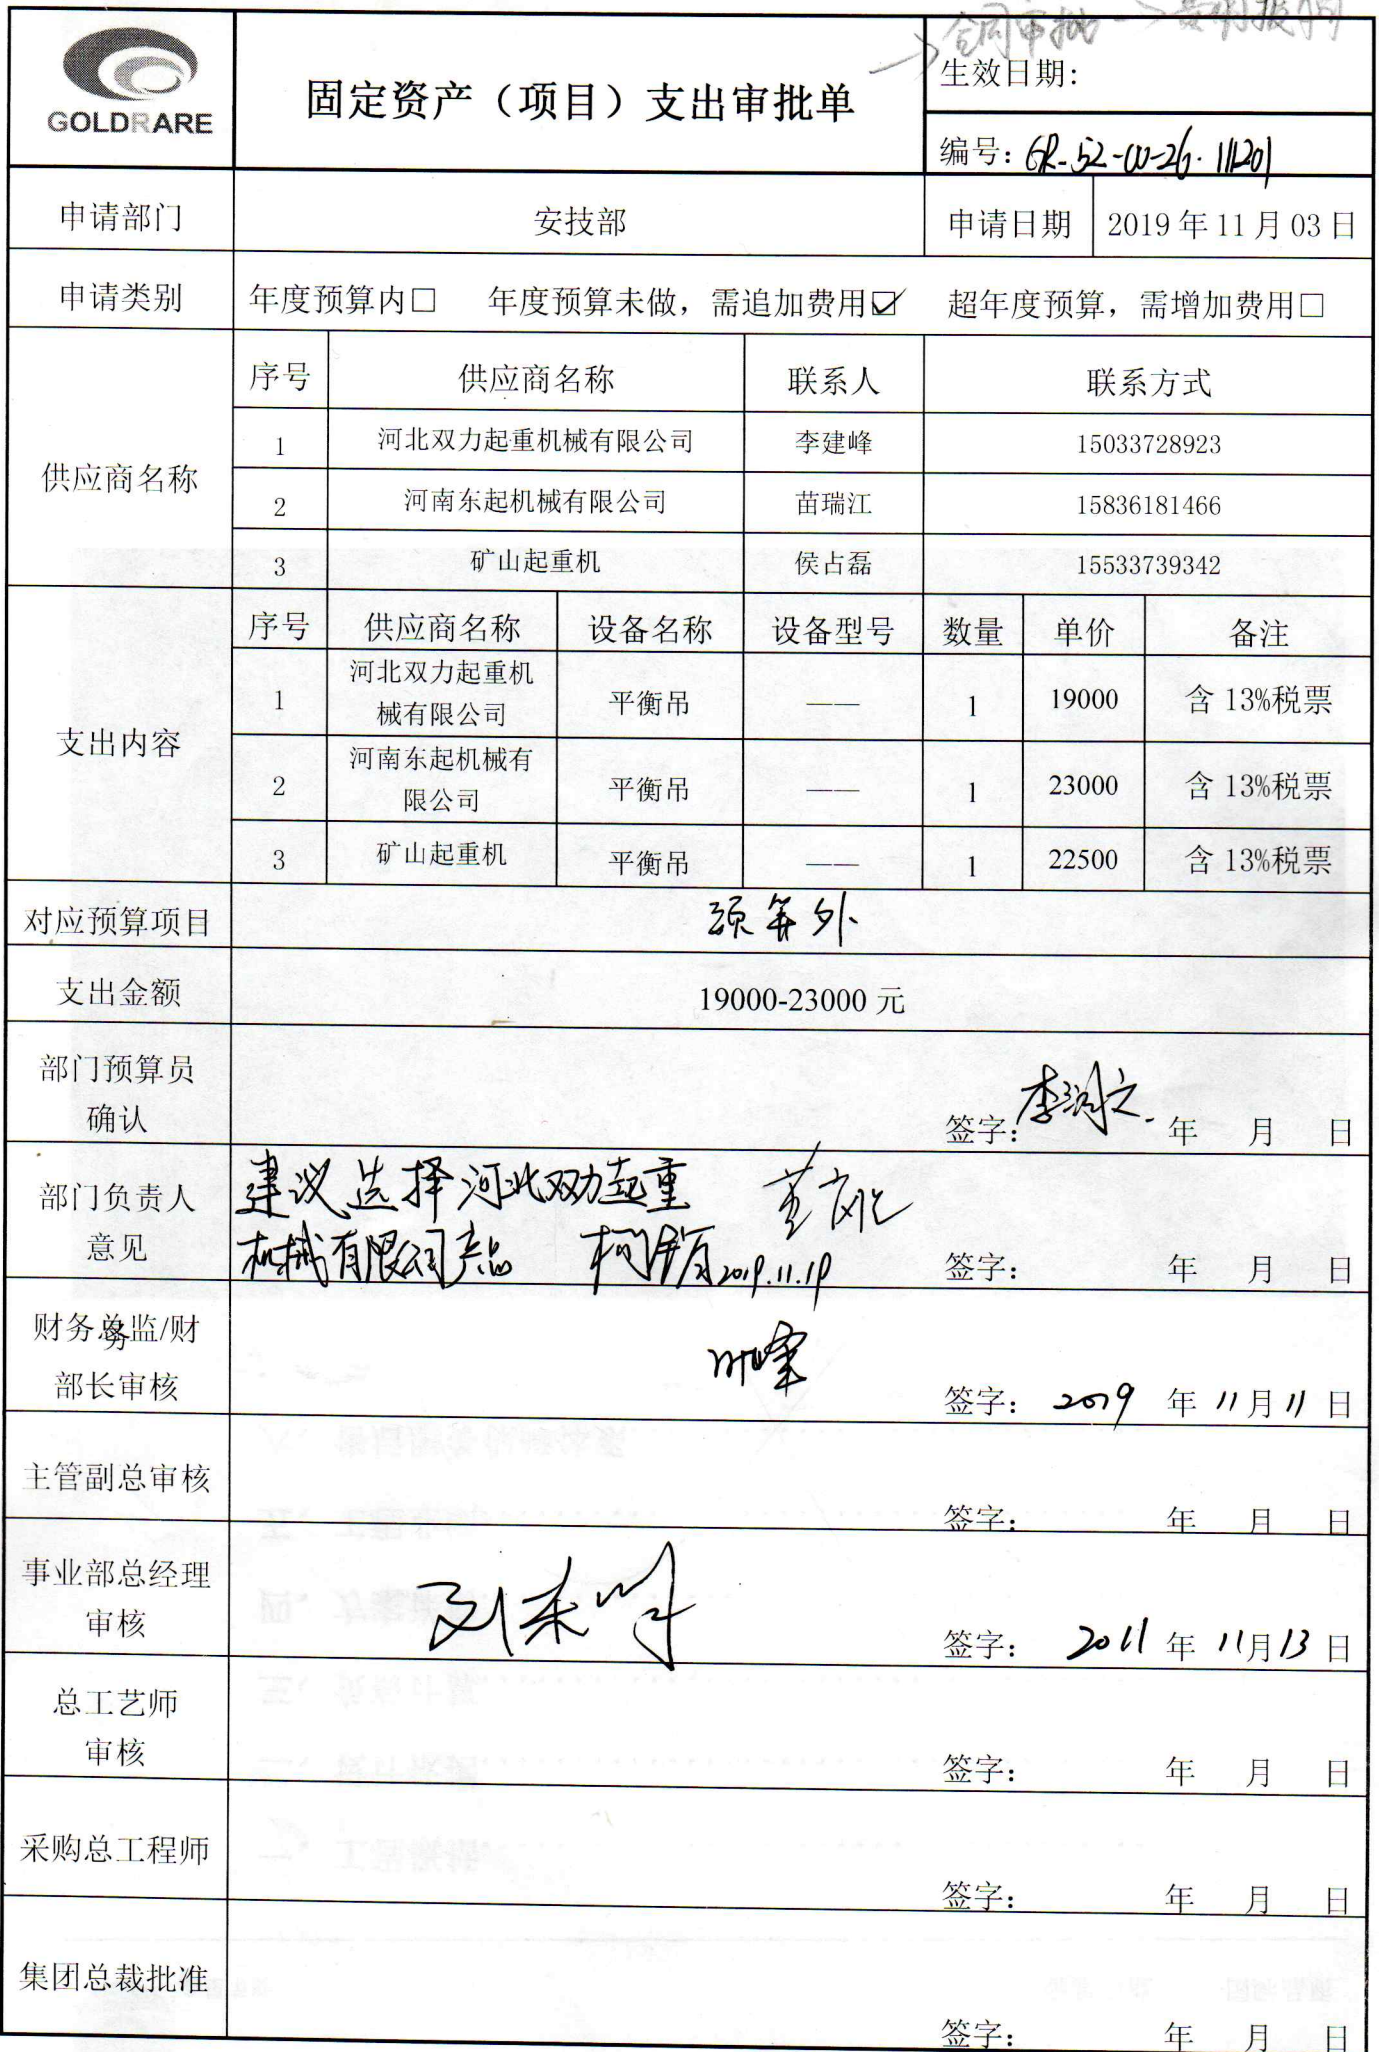 合同审批 -> 费用报销
GOLDRARE
固定资产（项目）支出审批单
生效日期:
编号: GR-52-W-26.111201
申请部门 安技部 申请日期 2019年11月03日
申请类别 年度预算内□ 年度预算未做，需追加费用☑ 超年度预算，需增加费用□
供应商名称
序号 供应商名称 联系人 联系方式
1 河北双力起重机械有限公司 李建峰 15033728923
2 河南东起机械有限公司 苗瑞江 15836181466
3 矿山起重机 侯占磊 15533739342
支出内容
序号 供应商名称 设备名称 设备型号 数量 单价 备注
1 河北双力起重机械有限公司 平衡吊 —— 1 19000 含 13%税票
2 河南东起机械有限公司 平衡吊 —— 1 23000 含 13%税票
3 矿山起重机 平衡吊 —— 1 22500 含 13%税票
对应预算项目 预算外
支出金额 19000-23000 元
部门预算员
确认
签字: 年 月 日
部门负责人
意见
建议选择河北双力起重
机械有限公司产品 2019.11.19
签字: 年 月 日
财务总监/财务
部长审核
签字: 2019 年 11 月 11 日
主管副总审核
签字: 年 月 日
事业部总经理
审核
签字: 2011 年 11 月 13 日
总工艺师
审核
签字: 年 月 日
采购总工程师
签字: 年 月 日
集团总裁批准
签字: 年 月 日